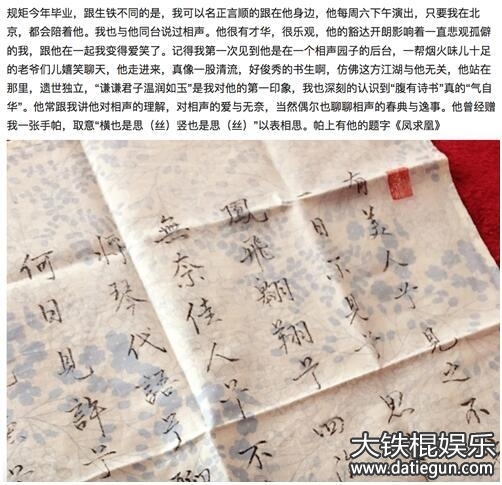 规矩今年毕业，跟生铁不同的是，我可以名正言顺的跟在他身边，他每周六下午演出，只要我在北
京，都会陪着他。我也与他同台说过相声。他很有才华，很乐观，他的豁达开朗影响着一直悲观孤僻
的我，跟他在一起我变得爱笑了。记得我第一次见到他是在一个相声园子的后台，一帮烟火味儿十足
的老爷们儿嬉笑聊天，他走进来，真像一股清流，好俊秀的书生啊，仿佛这方江湖与他无关，他站在
那里，遗世独立，“谦谦君子温润如玉”是我对他的第一印象，我也深刻的认识到“腹有诗书”真的“气自
华”。他常跟我讲他对相声的理解，对相声的爱与无奈，当然偶尔也聊聊相声的春典与逸事。他曾经赠
我一张手帕，取意“横也是思（丝）竖也是思（丝）”以表相思。帕上有他的题字《凤求凰》
有美人兮見之不
一日不見兮思
鳳飛翱翔兮四
無奈佳人兮不
將琴代語兮聊
何日見許兮
大铁棍娱乐
www.datiegun.com